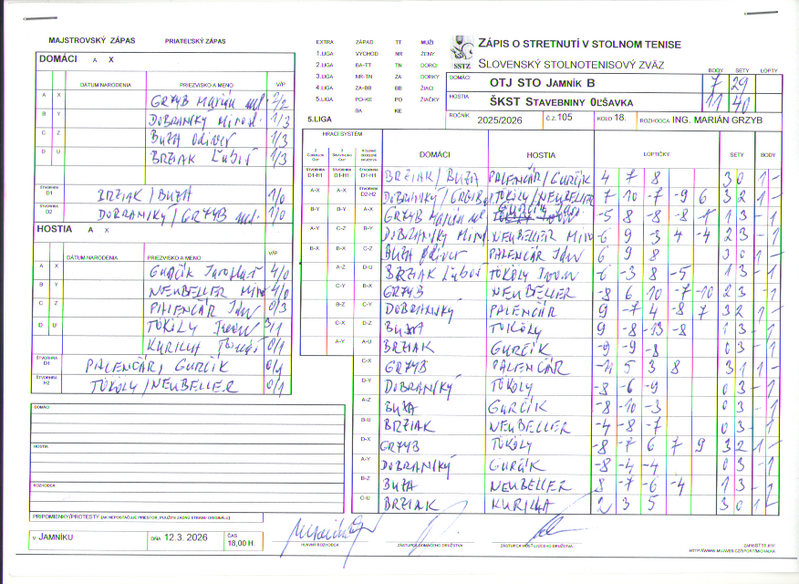 MAJSTROVSKÝ ZÁPAS PRIATEĽSKÝ ZÁPAS
DOMÁCI A X
DÁTUM NARODENIA PRIEZVISKO A MENO V/P
A X GRZYB Marián ml. 2/2
B Y DOBRANSKÝ Mirosl. 1/3
C Z BUŽA Oliver 1/3
D U BRŽIAK Ľuboš 1/3
ŠTVORHRA D1 BRŽIAK / BUŽA 1/0
ŠTVORHRA D2 DOBRANSKÝ / GRZYB ml. 1/0
HOSTIA A X
DÁTUM NARODENIA PRIEZVISKO A MENO V/P
A X GURČÍK Jaroslav 4/0
B Y NEUBELLER Miro 4/0
C Z PALENČÁR Ján 0/3
D U TÖKÖLY 3/1
KURILLA Tomáš 0/1
ŠTVORHRA D1 PALENČÁR / GURČÍK 0/1
ŠTVORHRA H2 TÖKÖLY / NEUBELLER 0/1
DOMÁCI
HOSTIA
ROZHODCA
PRIPOMIENKY/PROTESTY
V JAMNÍKU DŇA 12.3.2026 ČAS 18,00 H.
EXTRA ZÁPAD TT MUŽI
1.LIGA VÝCHOD NR ŽENY
2.LIGA BA-TT TN DORCI
3.LIGA NR-TN ZA DORKY
4.LIGA ZA-BB BB ŽIACI
5.LIGA PO-KE PO ŽIAČKY
BA KE
5.LIGA
SSTZ
ZÁPIS O STRETNUTÍ V STOLNOM TENISE
SLOVENSKÝ STOLNOTENISOVÝ ZVÄZ
BODY SETY LOPTY
DOMÁCI OTJ STO JAMNÍK B 7 29
HOSTIA ŠKST STAVEBNINY OĽŠAVKA 11 40
ROČNÍK 2025/2026 Č.Z. 105 KOLO 18. ROZHODCA ING. MARIÁN GRZYB
HRACÍ SYSTÉM
DOMÁCI HOSTIA LOPTIČKY SETY BODY
D1-H1 D1-H1 D1-H1 BRŽIAK / BUŽA PALENČÁR / GURČÍK 4 7 8 3 0 1 -
A-X D2-H2 DOBRANSKÝ / GRZYB TÖKÖLY / NEUBELLER 7 10 -7 -9 6 3 2 1 -
B-Y B-Y A-X GRZYB Marián ml. GURČÍK -5 8 -8 -8 1 3 - 1
A-Y C-Z B-Y DOBRANSKÝ Miro NEUBELLER Miro -6 9 3 -4 -4 2 3 - 1
B-X B-X C-Z BUŽA Oliver PALENČÁR Ján 6 9 8 3 0 1 -
A-Z D-U BRŽIAK Ľuboš TÖKÖLY -6 -3 8 -5 1 3 - 1
C-Y B-X GRZYB NEUBELLER -8 6 10 -7 -10 2 3 - 1
B-Z C-Y DOBRANSKÝ PALENČÁR 9 -7 4 -8 7 3 2 1 -
C-X D-Z BUŽA TÖKÖLY 9 -8 -13 -8 1 3 - 1
A-Y A-U BRŽIAK GURČÍK -9 -9 -8 0 3 - 1
C-X GRZYB PALENČÁR 5 3 8 3 1 1 -
D-Y DOBRANSKÝ TÖKÖLY -8 -6 -9 0 3 - 1
A-Z BUŽA GURČÍK -8 -10 -3 0 3 - 1
B-U BRŽIAK NEUBELLER -4 -8 -7 0 3 - 1
D-X GRZYB TÖKÖLY -8 -7 6 7 9 3 2 1 -
A-Y DOBRANSKÝ GURČÍK -8 -4 -4 0 3 - 1
B-Z BUŽA NEUBELLER 8 -7 -6 -4 1 3 - 1
C-U BRŽIAK KURILLA 2 3 5 3 0 1 -